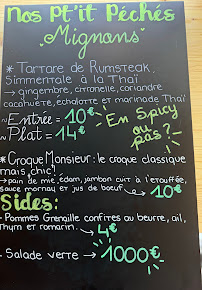 Nos Pt'it Péchés
Mignons
* Tartare de Rumsteak
Simmentale à la Thaï
→ gingembre, citronelle, coriandre
cacahuète, échalotte et marinade Thaï
~Entrée = 10€
~Plat = 14€
En Spicy
ou
pas ?
* Croque Monsieur : le croque classique
mais chic !
→ pain de mie, edam, jambon cuit à l'étouffée,
sauce mornay et jus de boeuf → 10€
Sides :
- Pommes Grenaille confites au beurre, ail,
thym et romarin. → 4€
- Salade verte → 1000€